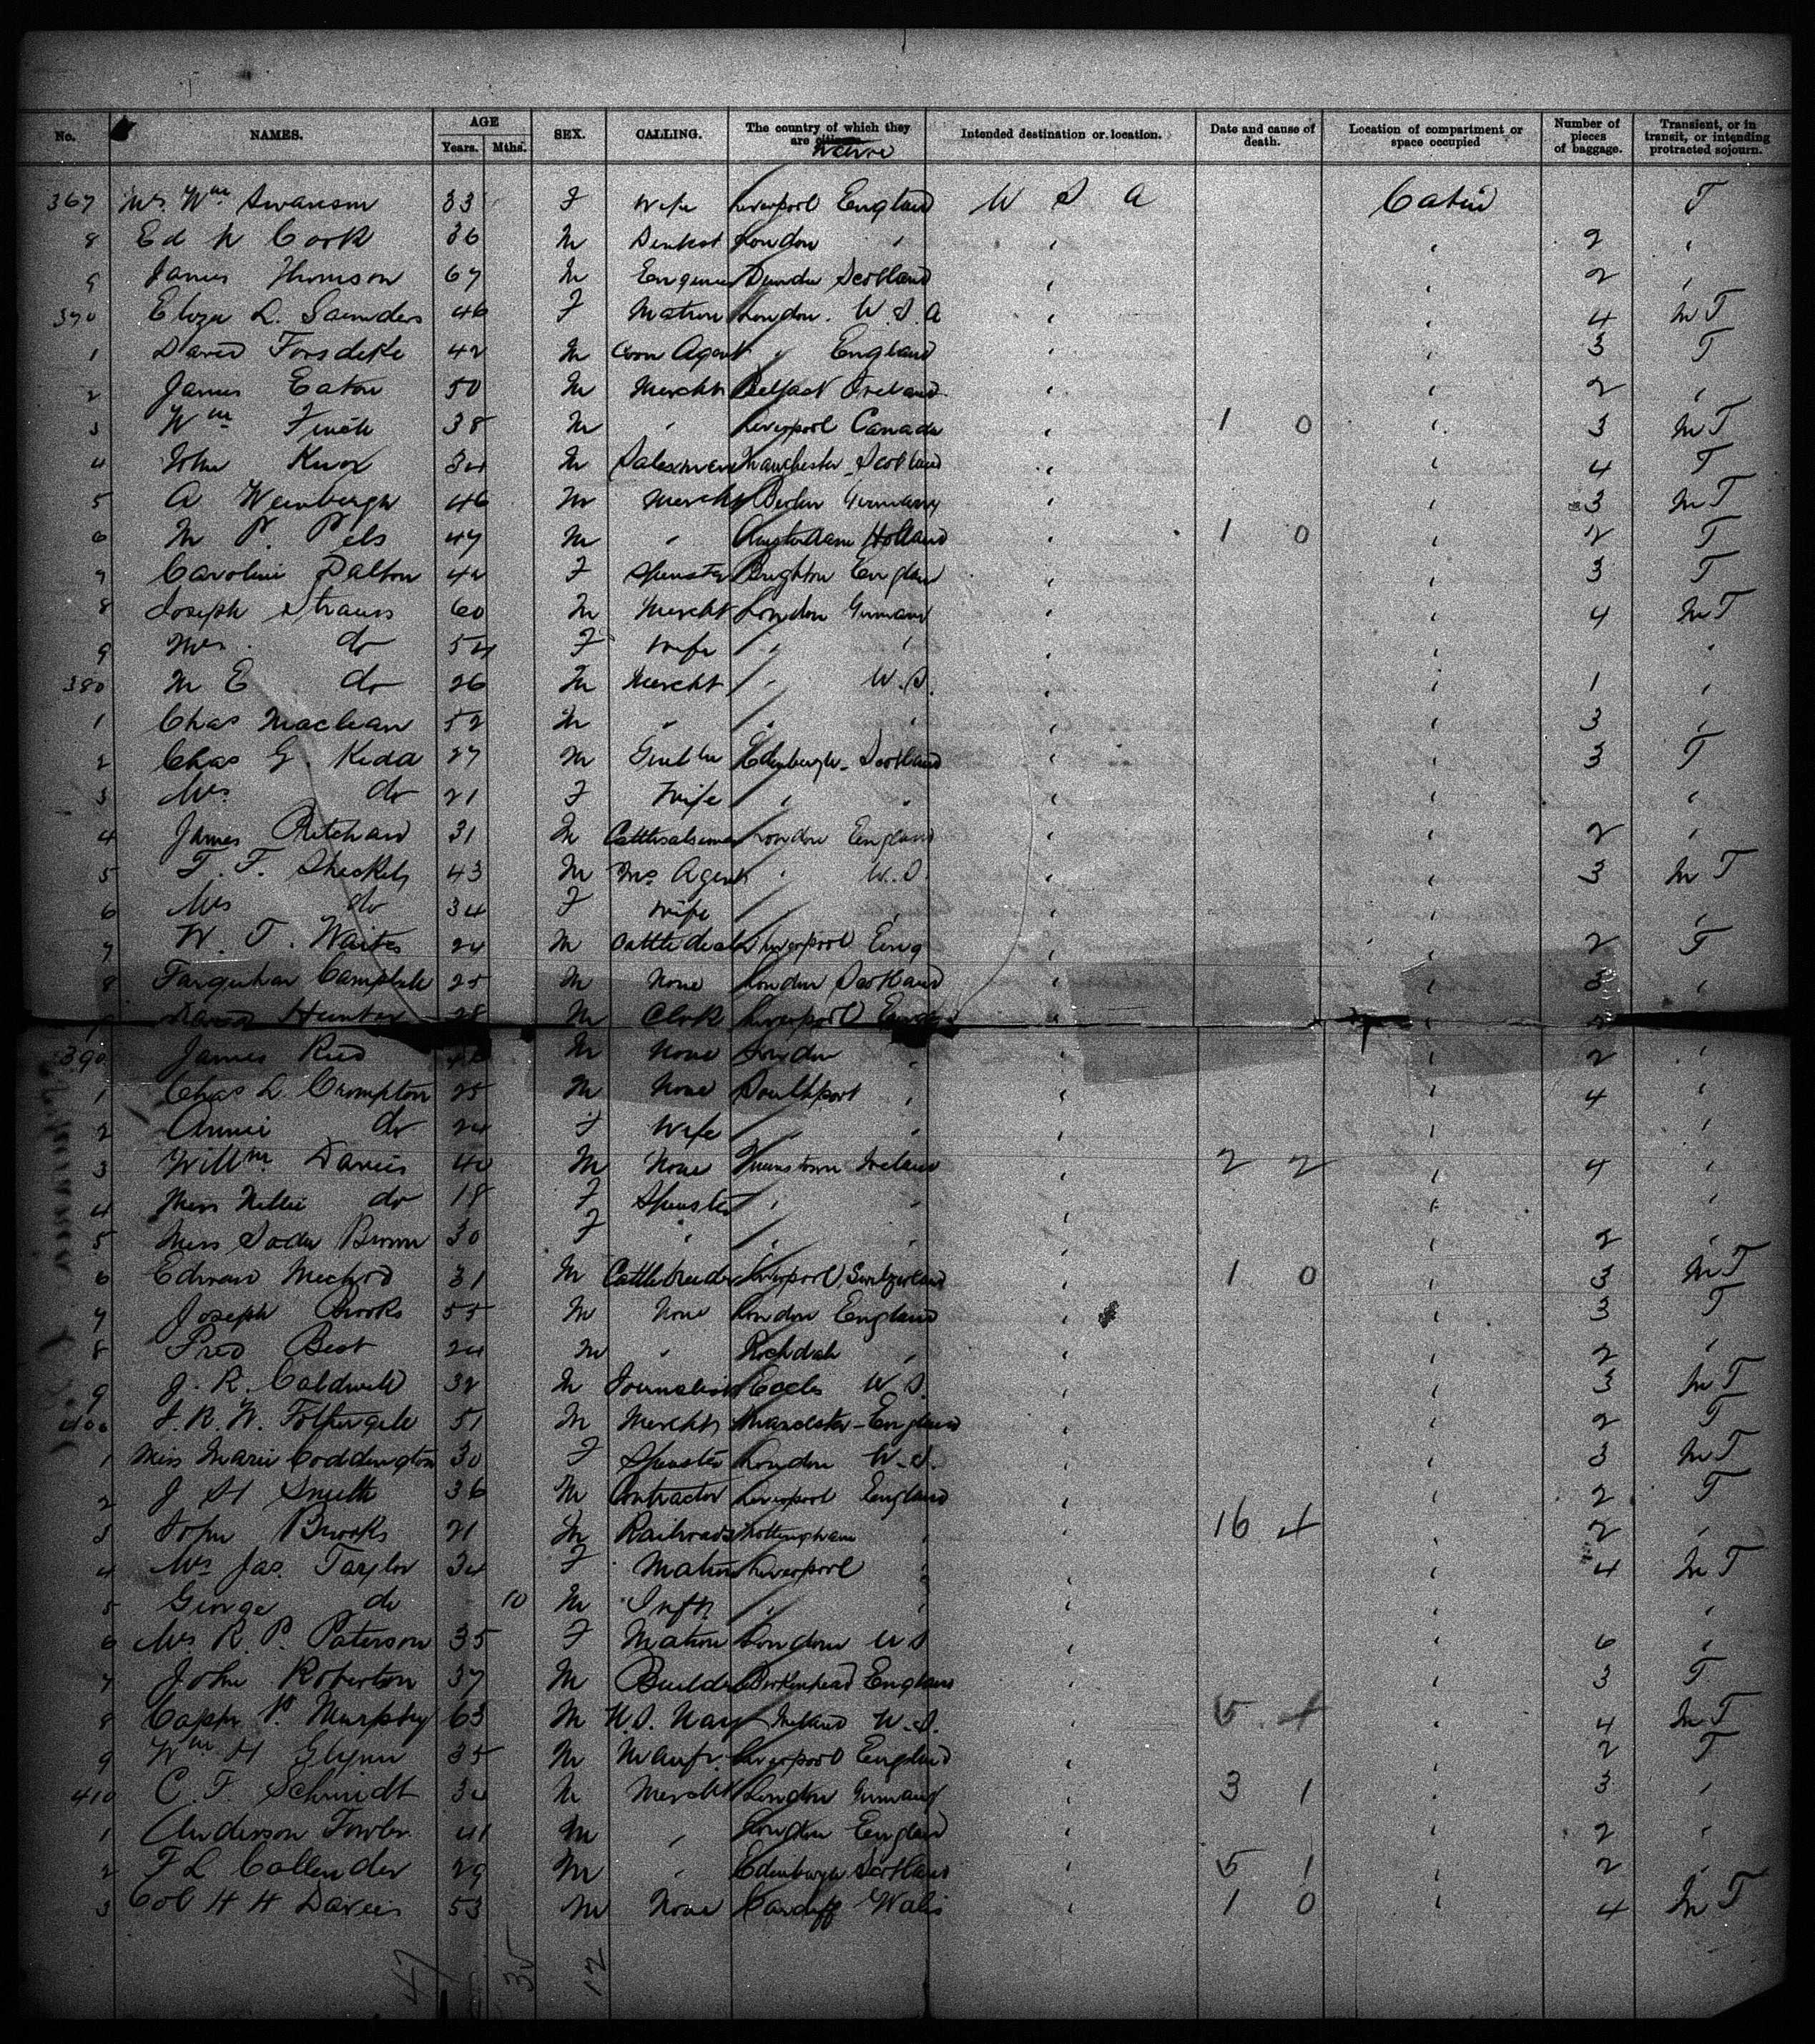 No. NAMES. AGE Years. Mths. SEX. CALLING. The country of which they are citizens. Native Intended destination or location. Date and cause of death. Location of compartment or space occupied Number of pieces of baggage. Transient, or in transit, or intending protracted sojourn.
367 Mrs Wm Swanson 33 F Wife Liverpool England U S A Cabin T
8 Ed N Cork 36 M Dentist London " " " 2 "
9 James Thomson 67 M Engineer Dundee Scotland " " 2 "
370 Eliza L. Saunders 46 F Matron London. U.S.A " " 4 In T
1 David Forsdike 42 M Com Agent " England " " 3 T
2 James Eaton 50 M Mercht Belfast Ireland " " 2 "
3 Wm Finch 38 M " Liverpool Canada " 1 0 " 3 In T
4 John Knox 34 M Salesman Manchester Scotland " " 4 T
5 A Weinbergh 46 M Mercht Berlin Germany " " 3 In T
6 M P. Pels 47 M " Amsterdam Holland " 1 0 " 2 T
7 Caroline Dalton 42 F Spinster Brighton England " " 3 T
8 Joseph Strauss 60 M Mercht London Germany " " 4 In T
9 Mrs. do 54 F Wife " " " " "
380 M E do 26 M Mercht " U.S. " " 1 "
1 Chas Maclean 52 M " " " " " 3 "
2 Chas G. Kidd 27 M Gentlm Edinburgh Scotland " " 3 T
3 Mrs do 21 F Wife " " " " "
4 James Ritchard 31 M Cattlesalesman London England " " 2 "
5 T. F. Sheckels 43 M Ins Agent " U.S. " " 3 In T
6 Mrs do 34 F Wife " " " "
7 W. T. Waites 24 M Cattle dealer Liverpool Eng " " 2 T
8 Farquhar Campbele 25 M None London Scotland " " 3 "
9 Hunter 28 M Clerk Liverpool Eng " "
390 James Reed M None London " " " 2 "
1 Chas L. Crompton 25 M None Southport " " " 4 "
2 Annie do 24 F Wife " " " " "
3 Willm Davies 40 M None Queenstown Ireland " 2 2 " 4 "
4 Miss Nellie do 18 F Spinster " " " " "
5 Miss Sadie Brown 30 F " " " " " 2 "
6 Edward 31 M Cattlebreeder Liverpool Switzerland " 1 0 " 3 In T
7 Joseph Brooks 55 M None London England " " 3 T
8 Fred Best 24 M " Rochdale " " " 2 "
9 J. R. Caldwell 32 M Journalist Eccles U S. " " 3 In T
400 J. R. W. Fothergile 51 M Mercht England " " 2 T
1 Miss Marie Coddington 30 F Spinster London U.S. " " 3 In T
2 J H Smith 36 M Contractor Liverpool England " " 2 T
3 John Brooks 21 M Railroads Nottingham " " 16 4 " 2 "
4 Mrs Jas. Taylor 34 F Matron Liverpool " " " 4 In T
5 George do 10 M Inft. " " " " "
6 Mrs R. P. Paterson 35 F Matron London U S " " 6 "
7 John Roberton 37 M Builder Birkenhead England " " 3 T
8 Captn P. Murphy 63 M U.S. Navy Ireland U.S. " 5 4 " 4 In T
9 Wm H Glynn 35 M Manfr. Liverpool England " " 2 T
410 C. F. Schmidt 34 M Mercht London Germany " 3 1 " 3 "
1 Anderson Fowler 41 M " London England " " 2 "
2 F L Callender 29 M " Edinburgh Scotland " 5 1 " 2 "
3 Col H H Davies 53 M None Cardiff Wales " 1 0 " 4 In T
47 35 12